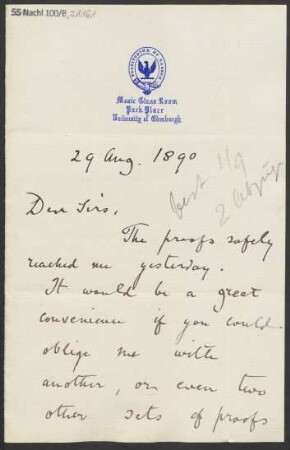 55 Nachl 100/B,
Music Class Room
Park Place
University of Edinburgh
29 Aug. 1890
best 1/9
2 Abzüge
Dear Sirs,
The proofs safely
reached me yesterday.
It would be a great
convenience if you could
oblige me with
another, or even two
other sets of proofs